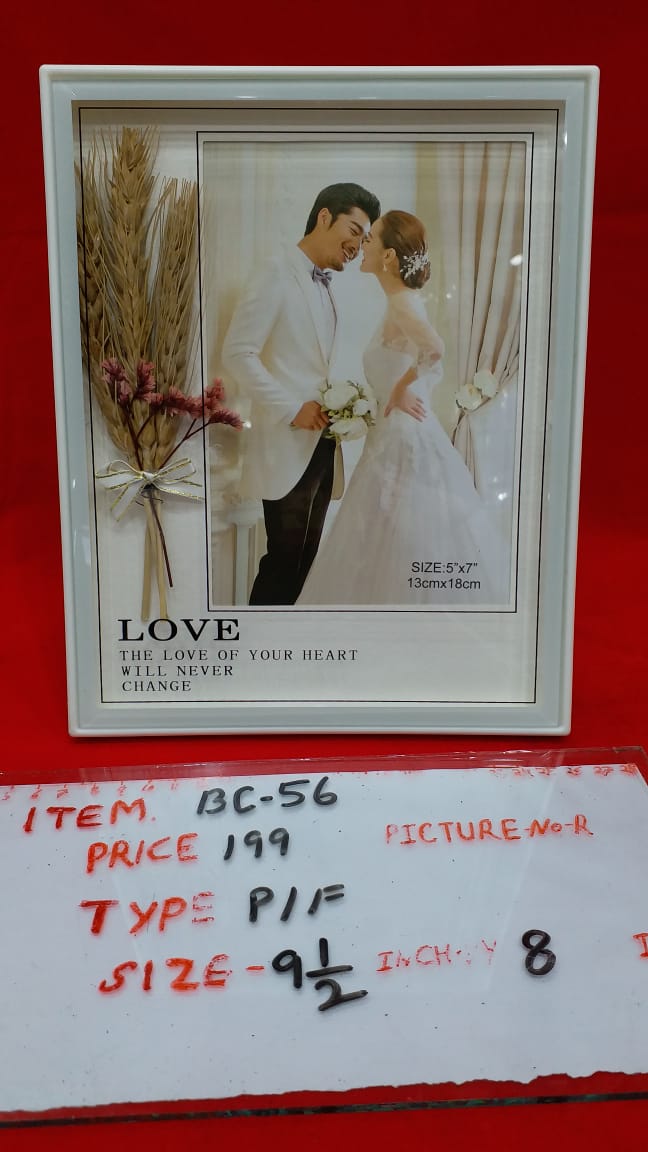 SIZE:5"x7"
13cmx18cm
LOVE
THE LOVE OF YOUR HEART
WILL NEVER
CHANGE
ITEM. BC-56
PRICE 199 PICTURE-No-R
TYPE P/F
SIZE-9 1/2 INCH 8